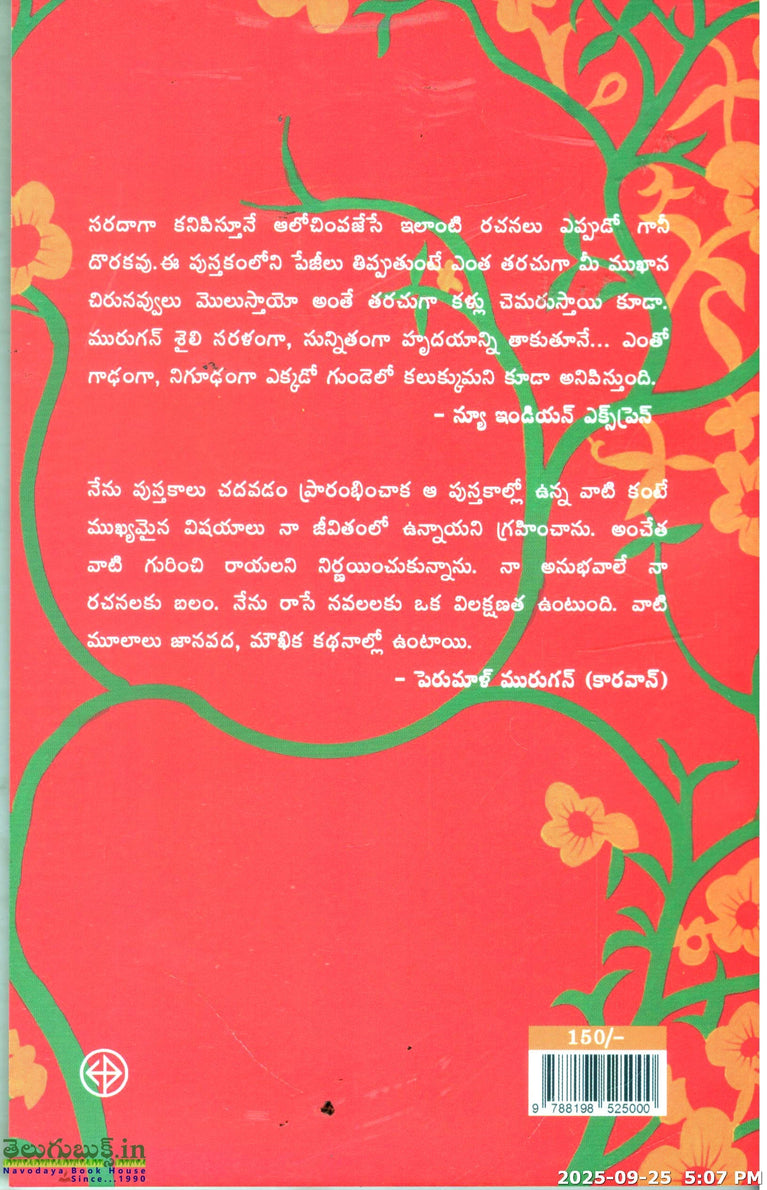 సరదాగా కనిపిస్తూనే ఆలోచింపజేసే ఇలాంటి రచనలు ఎప్పుడో గానీ
దొరకవు.ఈ పుస్తకంలోని పేజీలు తిప్పుతుంటే ఎంత తరచుగా మీ ముఖాన
చిరునవ్వులు మొలుస్తాయో అంతే తరచుగా కళ్లు చెమరుస్తాయి కూడా.
మురుగన్ శైలి సరళంగా, సున్నితంగా హృదయాన్ని తాకుతూనే... ఎంతో
గాఢంగా, నిగూఢంగా ఎక్కడో గుండెలో కలుక్కుమని కూడా అనిపిస్తుంది.
– న్యూ ఇండియన్ ఎక్స్‌ప్రెస్
నేను పుస్తకాలు చదవడం ప్రారంభించాక ఆ పుస్తకాల్లో ఉన్న వాటి కంటే
ముఖ్యమైన విషయాలు నా జీవితంలో ఉన్నాయని గ్రహించాను. అంచేత
వాటి గురించి రాయలని నిర్ణయించుకున్నాను. నా అనుభవాలే నా
రచనలకు బలం. నేను రాసే నవలలకు ఒక విలక్షణత ఉంటుంది. వాటి
మూలాలు జానపద, మౌఖిక కథనాల్లో ఉంటాయి.
– పెరుమాళ్ మురుగన్ (కారవాన్)
150/–
9 788198 525000
తెలుగుబుక్స్.in
Navodaya Book House
Since...1990
2025-09-25 5:07 PM